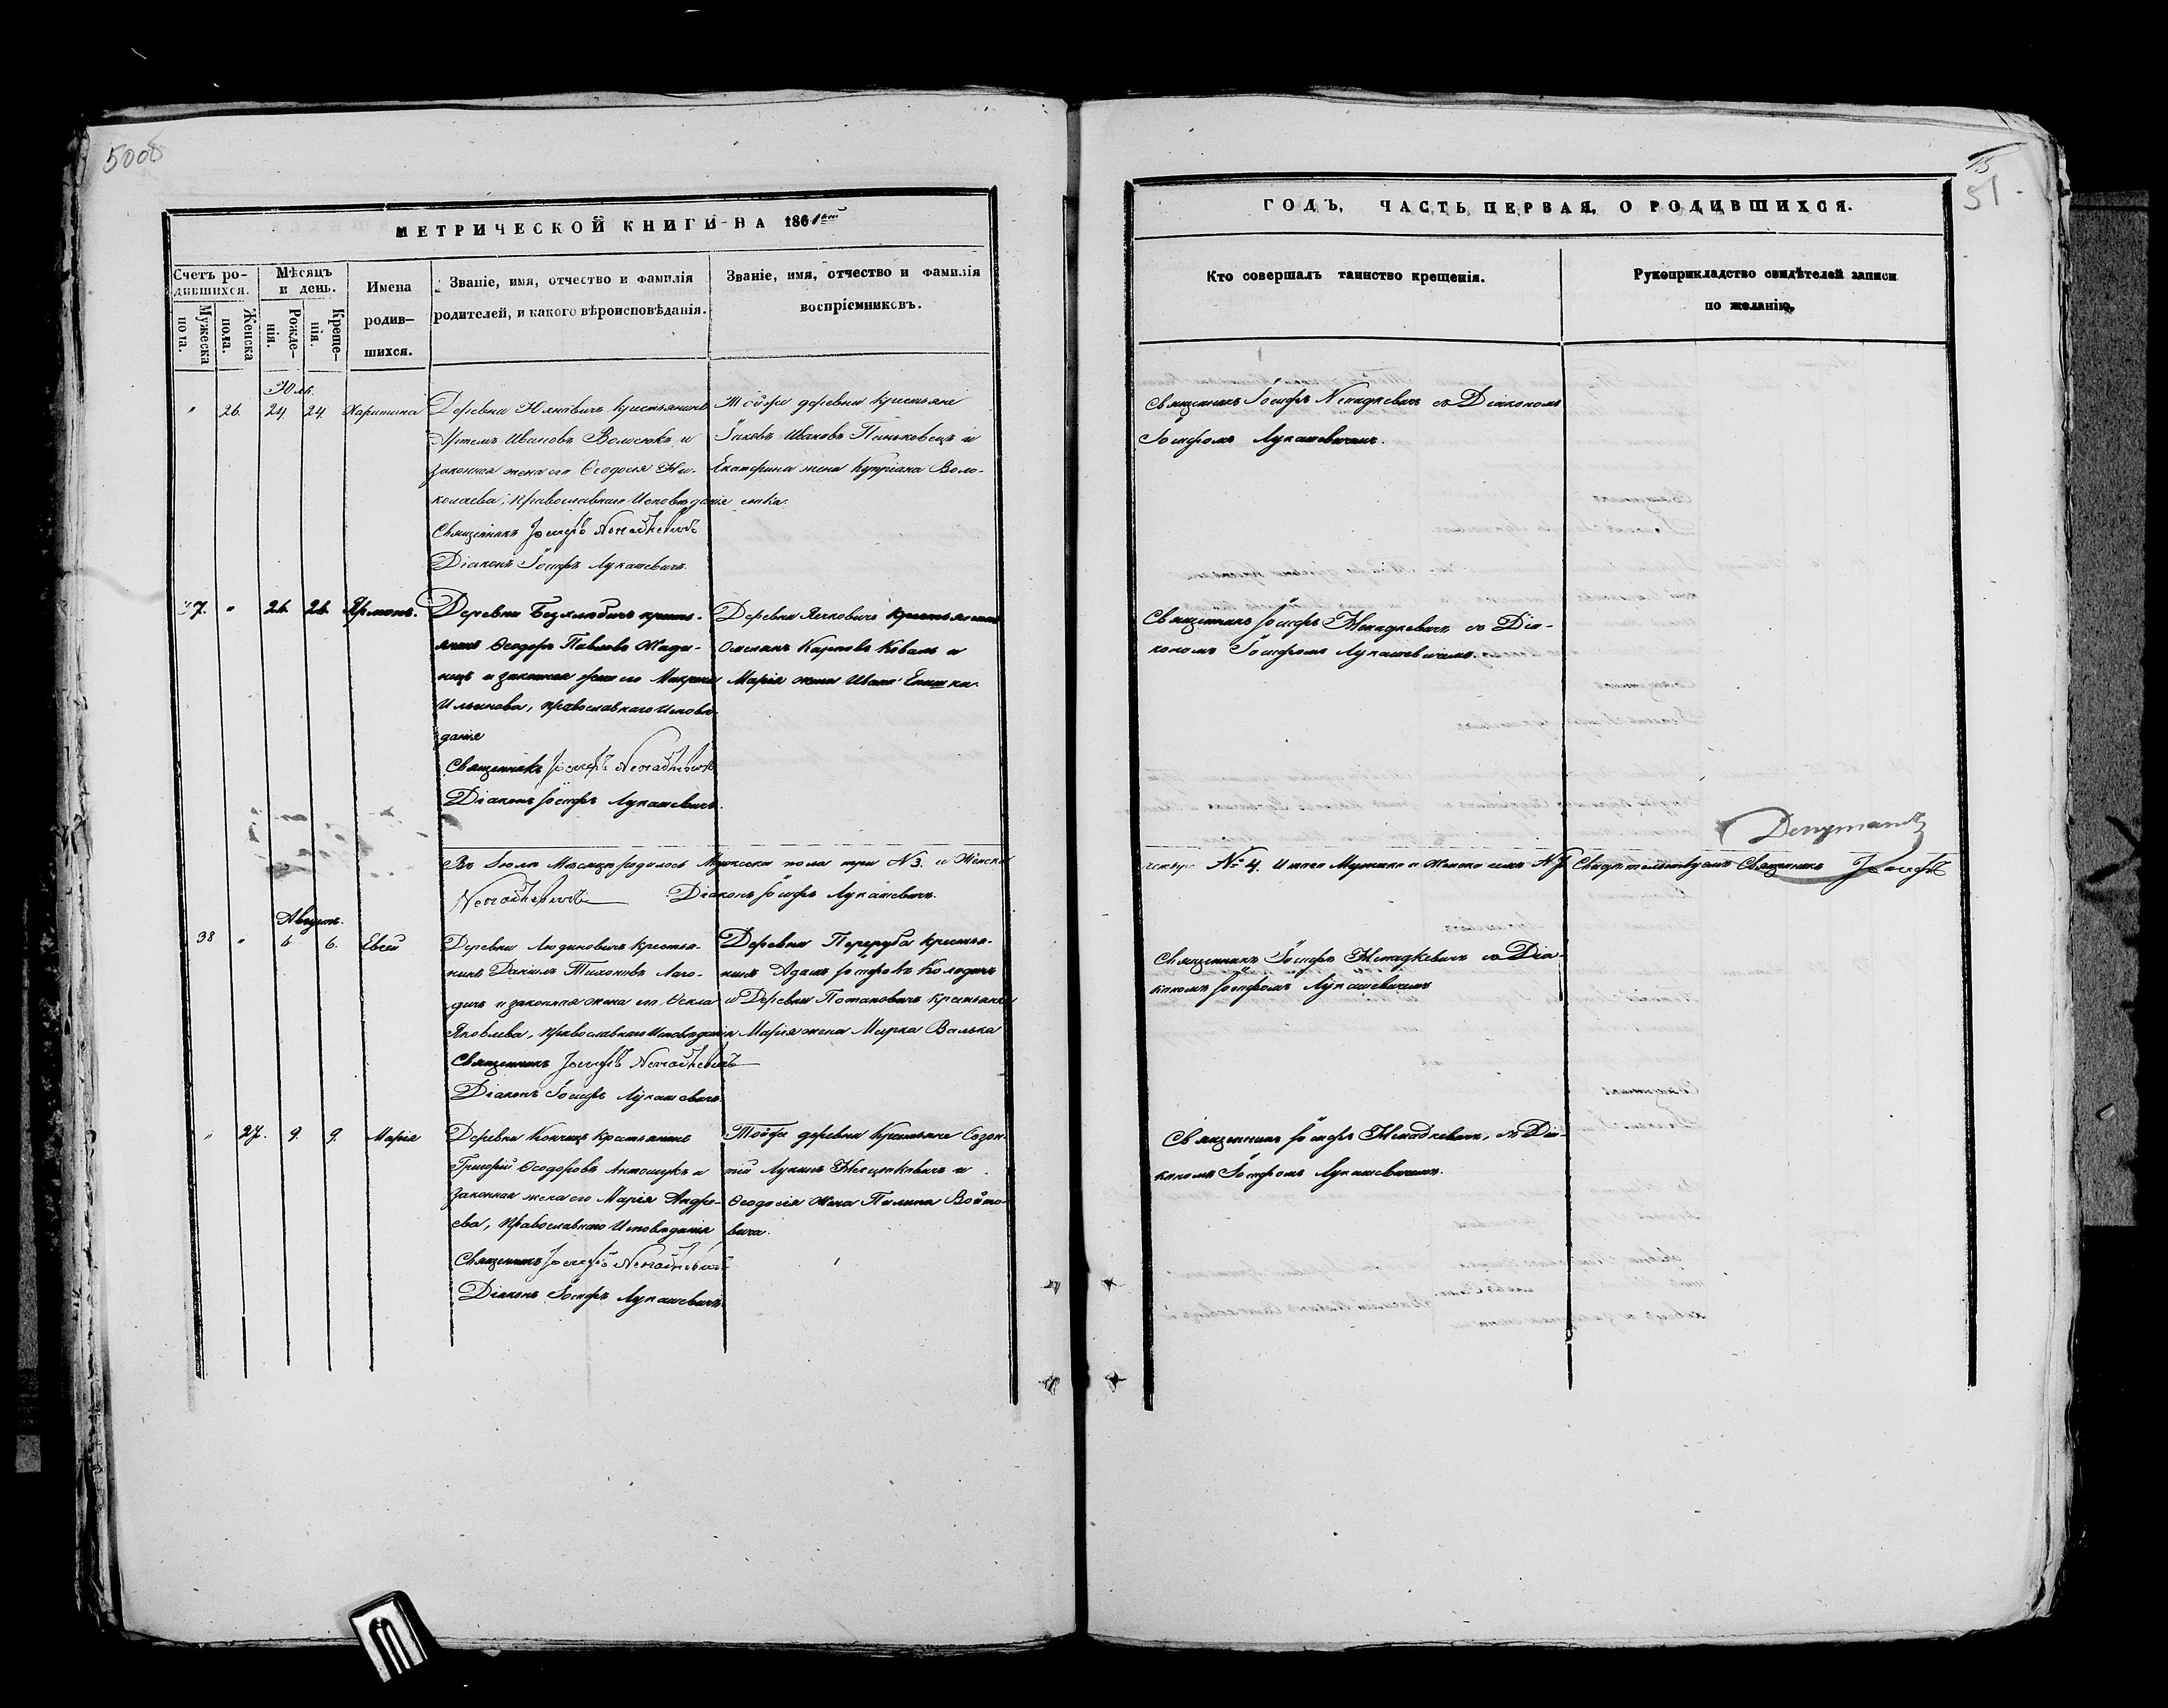 5006
МЕТРИЧЕСКОЙ КНИГИ НА 1861
Счетъ ро-
дившихся.
Мужеска
пола.
Женска
пола.
Мѣсяцъ
и день.
Рожде-
нія.
Креще-
нія.
Имена
родив-
шихся.
Званіе, имя, отчество и фамилія
родителей, и какого вѣроисповѣданія.
Званіе, имя, отчество и фамилія
воспріемниковъ.
Юль
" 26. 24 24 Харитина
Деревни Юхновичъ крестьянинъ
Артемъ Ивановъ Волосюкъ и
законная жена его Ѳеодосія Ни-
колаева, Православнаго Исповѣданія
Священникъ Іосифъ Ненадкевичъ
Діаконъ Іосифъ Лукашевичъ.
Тойже деревни крестьяне
Іаковъ Ивановъ Паньковецъ и
Екатерина жена Купріана Воло-
сюка.
37. " 26. 26. Ярмонъ.
Деревни Безхлѣбичъ кресть-
янинъ Ѳеодоръ Павловъ
и законная жена его Макрина
Ильинова, Православнаго Исповѣ-
данія
Священникъ Іосифъ Ненадкевичъ
Діаконъ Іосифъ Лукашевичъ.
Деревни Ячковичъ крестьянинъ
Омельянъ Карповъ Коваль и
Марія жена Ивана
Въ Іюлѣ Мѣсяцѣ родилось Мужеска пола три №3. и Женска
Ненадкевичъ Діаконъ Іосифъ Лукашевичъ.
Августъ.
38 " 6 6. Евсей
Деревни Людиновичъ крестья-
нинъ Даніилъ Тихоновъ Лаго-
дичъ и законная жена его Ѳекла
Яковлева, Православнаго Исповѣданія
Священникъ Іосифъ Ненадкевичъ
Діаконъ Іосифъ Лукашевичъ.
Деревни Переруба крестья-
нинъ Адамъ Іосифовъ Колодичъ
и Деревни Потаповичъ крестьянка
Марія жена Марка Валька
" 27. 9. 9. Марія
Деревни Кончицъ крестьянинъ
Григорій Ѳеодоровъ Антошукъ и
законная жена его Марія Андре-
ева, Православнаго Исповѣданія
Священникъ Іосифъ Ненадкевичъ
Діаконъ Іосифъ Лукашевичъ.
Тойже деревни Крестьяне Созон-
тій Лукинъ и
Ѳеодосія жена Пилипа Войто-
вича.
15
51
ГОДЪ, ЧАСТЬ ПЕРВАЯ, О РОДИВШИХСЯ.
Кто совершалъ таинство крещенія.
Рукоприкладство свидѣтелей записи
по желанію.
Священникъ Іосифъ Ненадкевичъ съ Діакономъ
Іосифомъ Лукашевичемъ.
Священникъ Іосифъ Ненадкевичъ съ Діа-
кономъ Іосифомъ Лукашевичемъ.
Депутатъ
четыре №4. Итого Мужеска и Женска семь №7 Свидѣтельствуемъ Священникъ Іосифъ
Священникъ Іосифъ Ненадкевичъ съ Діа-
кономъ Іосифомъ Лукашевичемъ
Священникъ Іосифъ Ненадкевичъ, съ Діа-
кономъ Іосифомъ Лукашевичемъ.